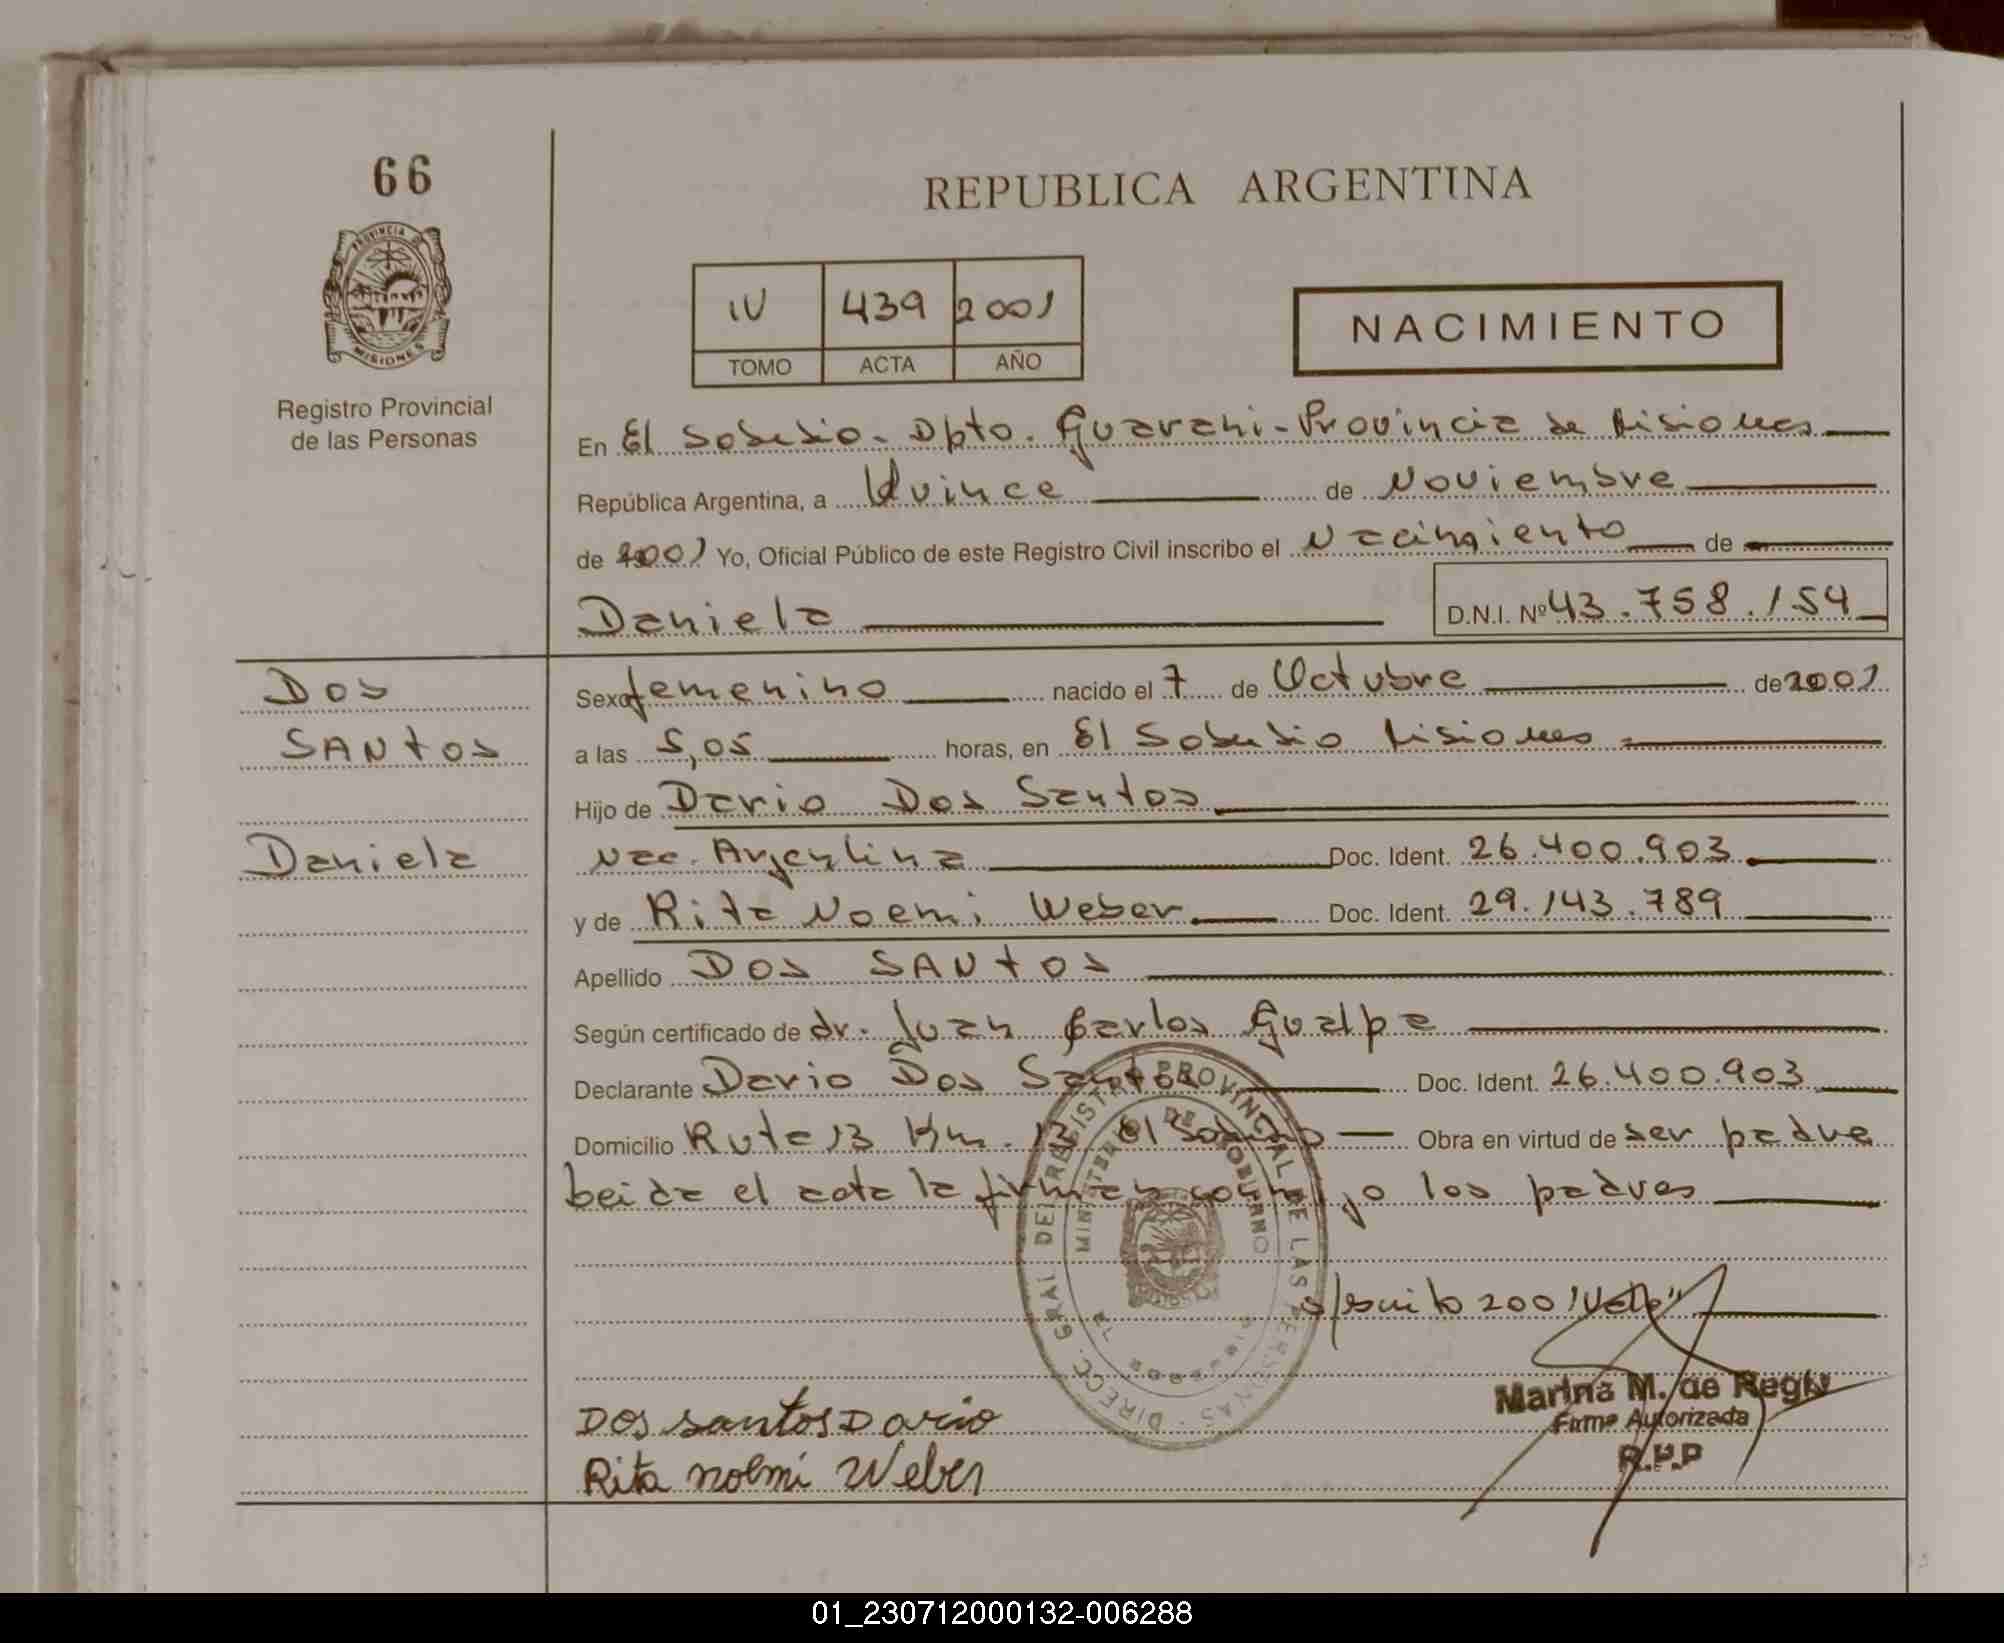 66
PROVINCIA DE
MISIONES
Registro Provincial
de las Personas
REPUBLICA ARGENTINA
IV 439 2001
TOMO ACTA AÑO
NACIMIENTO
En El Soberbio - Dpto. Guarani - Provincia de Misiones
República Argentina, a Quince de Noviembre
de 2001 Yo, Oficial Público de este Registro Civil inscribo el Nacimiento de
Daniela D.N.I. Nº 43.758.154
Dos
SANtos
Daniela
Sexo femenino nacido el 7 de Octubre de 2001
a las 5,05 horas, en El Soberbio Misiones
Hijo de Dario Dos Santos
Nac. Argentina Doc. Ident. 26.400.903
y de Rita Noemi Weber Doc. Ident. 29.143.789
Apellido DOS SANtOS
Según certificado de dr. Juan Carlos Gualpa
Declarante Dario Dos Santos Doc. Ident. 26.400.903
Domicilio Ruta 13 Km. 13 El Soberbio Obra en virtud de ser padre
leida el acta la firman conmigo los padres
s/escrito 2001 "Vale"
DIRECC. GRAL DEL REGISTRO PROVINCIAL DE LAS PERSONAS
MINISTERIO DE GOBIERNO
Marina M. de Regly
Firma Autorizada
R.P.P
Dos santos Dario
Rita noemi Weber
01_230712000132-006288